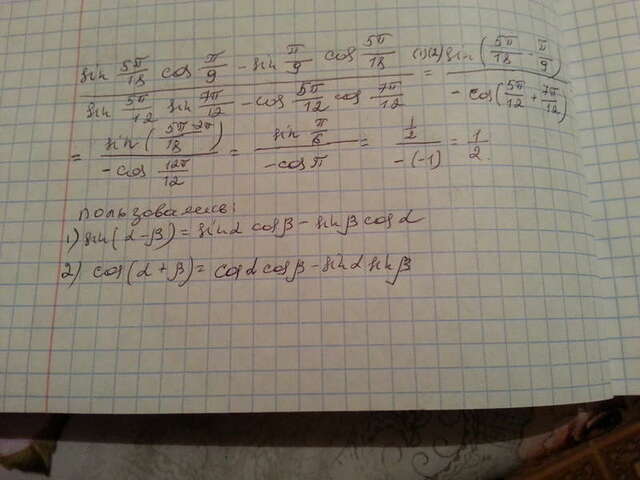 (sin 5π/18 cos π/9 - sin π/9 cos 5π/18) / (sin 5π/12 sin 7π/12 - cos 5π/12 cos 7π/12) (1)(2) = sin(5π/18 - π/9) / (- cos(5π/12 + 7π/12))
= sin(5π-2π/18) / (- cos 12π/12) = sin π/6 / (- cos π) = 1/2 / (-(-1)) = 1/2.
пользовались:
1) sin(α-β) = sinα cosβ - sinβ cosα
2) cos(α+β) = cosα cosβ - sinα sinβ